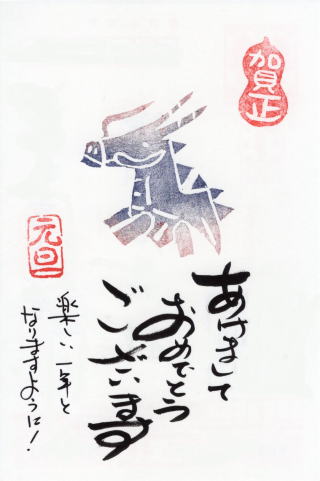 賀正
あけまして
おめでとう
ございます
楽しい一年と
なりますように！
元旦